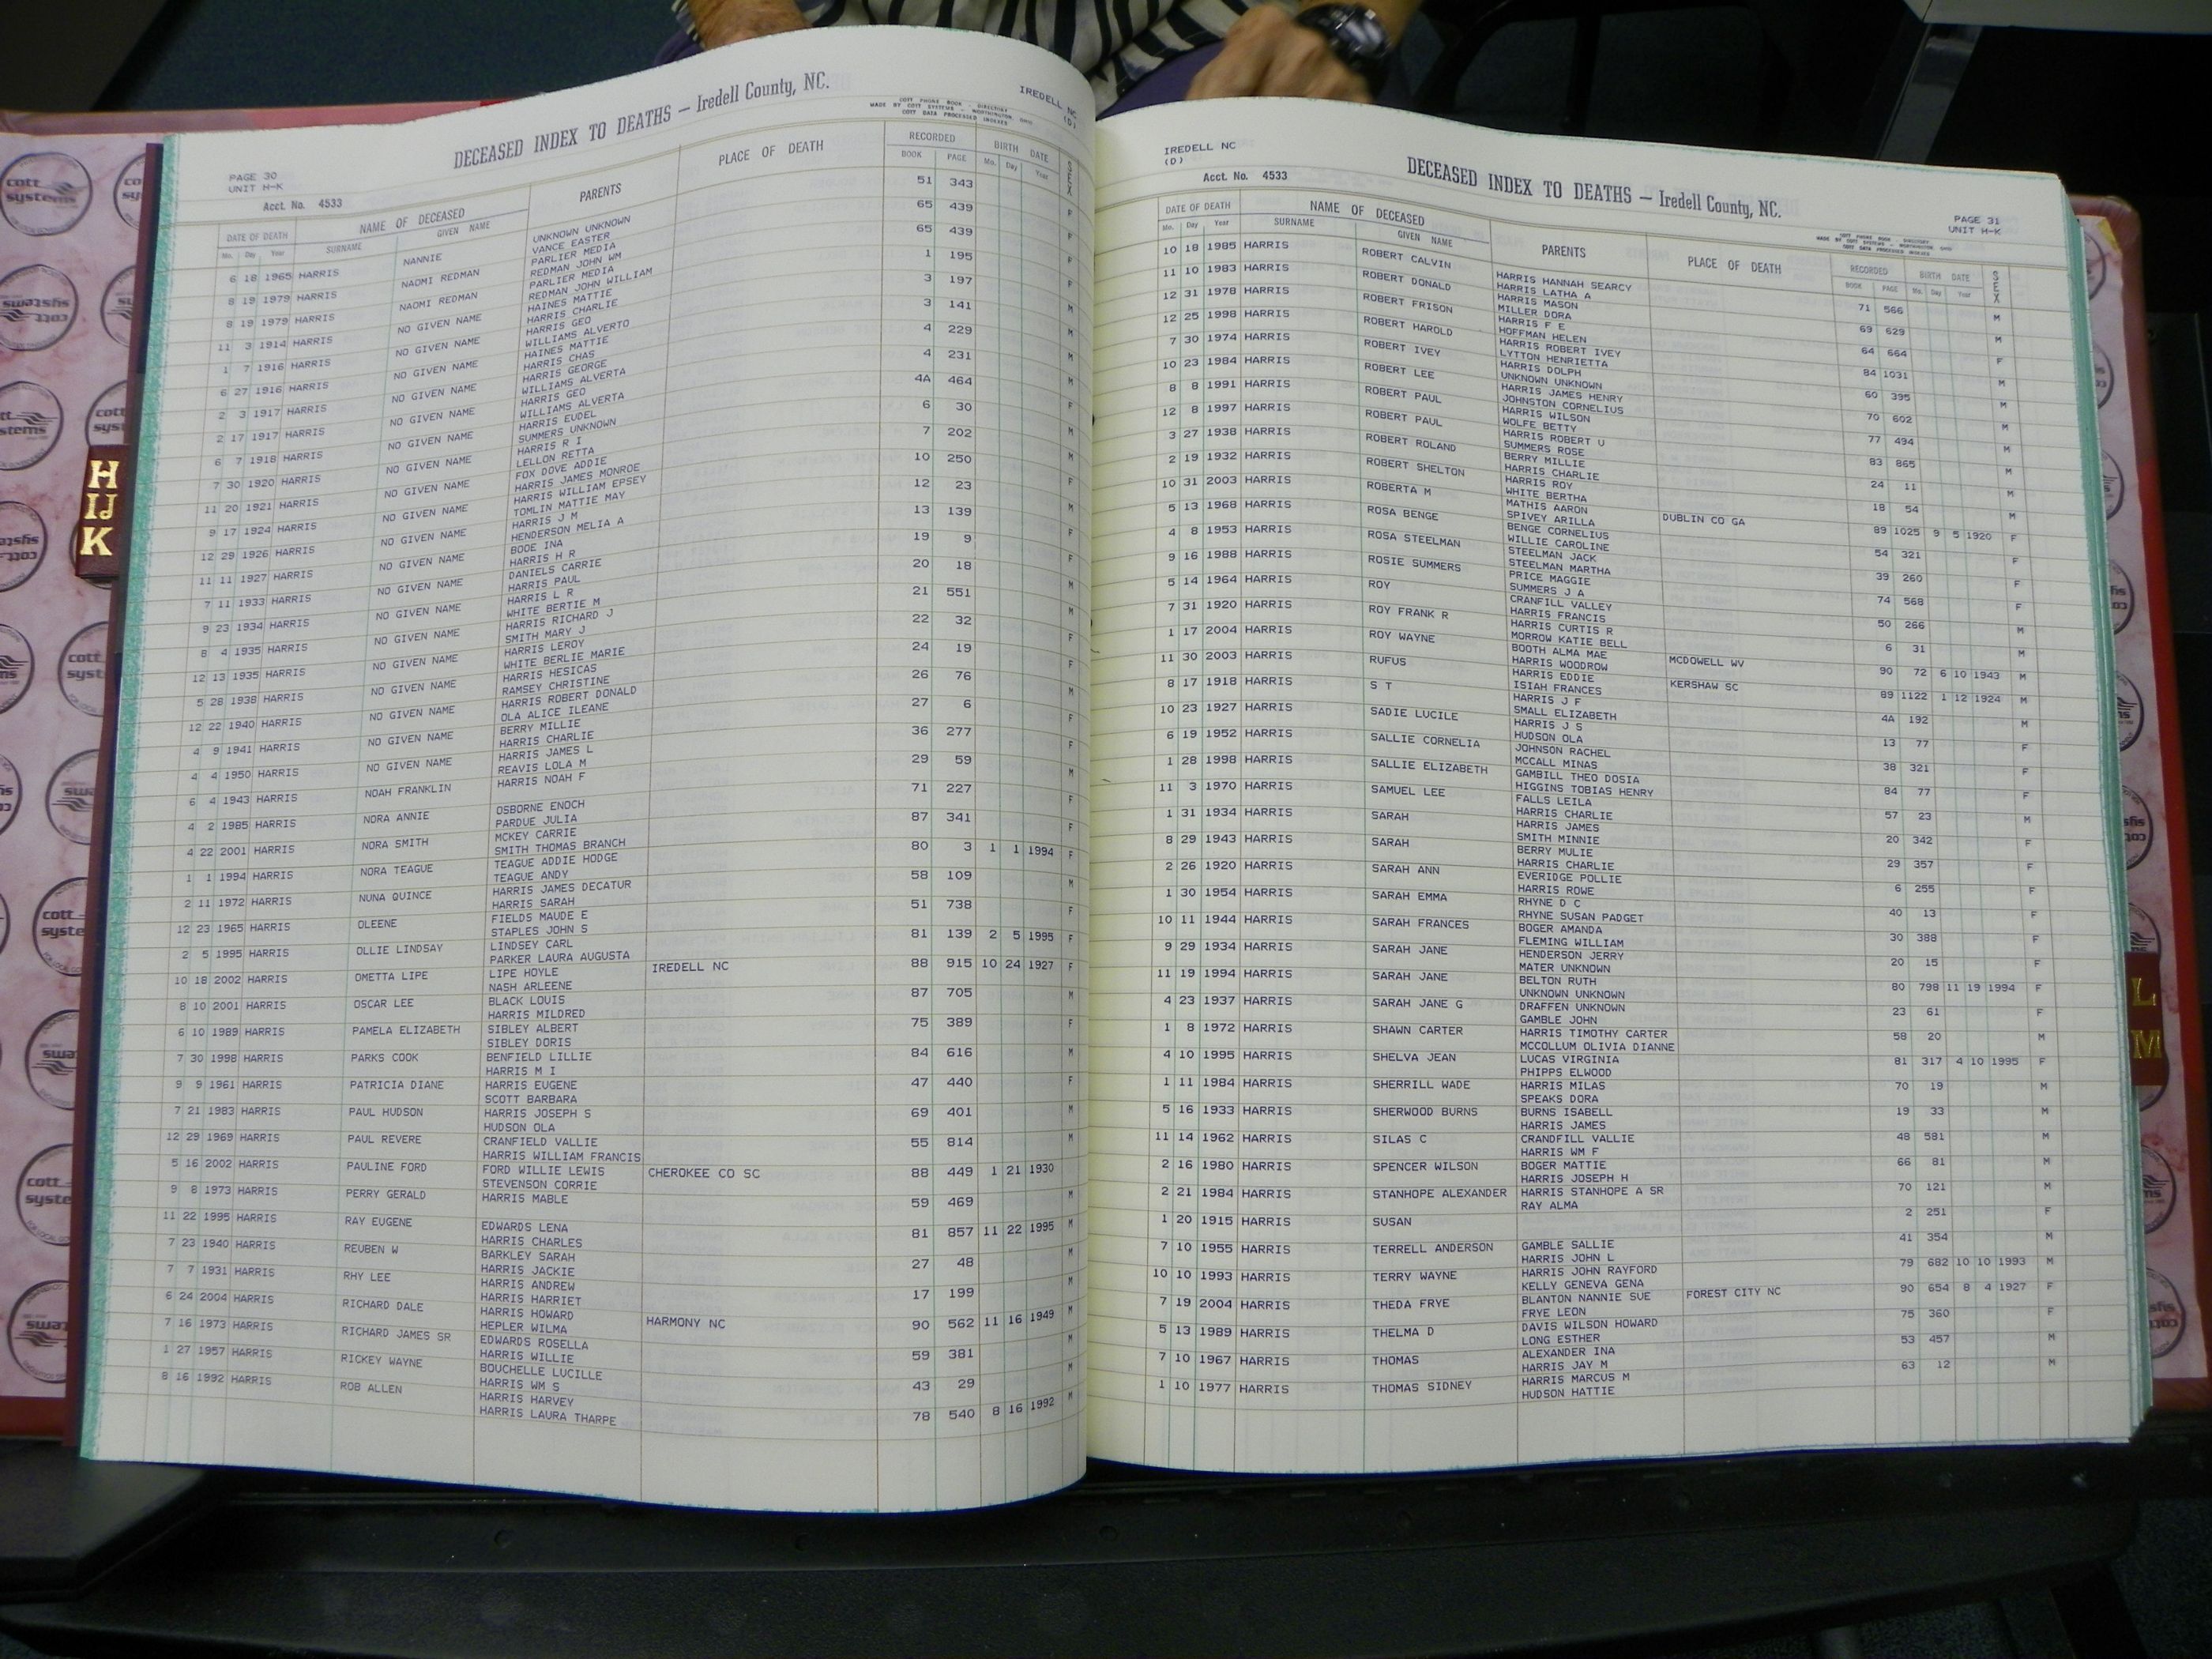 DECEASED INDEX TO DEATHS — Iredell County, NC.
IREDELL NC
(D)
COTT PHONE BOOK - DIRECTORY
MADE BY COTT SYSTEMS - WORTHINGTON, OHIO
COTT DATA PROCESSED INDEXES
PAGE 30
UNIT H-K
Acct. No. 4533
DATE OF DEATH NAME OF DECEASED PARENTS PLACE OF DEATH RECORDED BIRTH DATE SEX
Mo. Day Year SURNAME GIVEN NAME BOOK PAGE Mo. Day Year
6 18 1965 HARRIS NANNIE UNKNOWN UNKNOWN 51 343 F
VANCE EASTER
8 19 1979 HARRIS NAOMI REDMAN PARLIER MEDIA 65 439 F
REDMAN JOHN WM
8 19 1979 HARRIS NAOMI REDMAN PARLIER MEDIA 65 439 F
REDMAN JOHN WILLIAM
11 3 1914 HARRIS NO GIVEN NAME HAINES MATTIE 1 195 F
HARRIS CHARLIE
1 7 1916 HARRIS NO GIVEN NAME HARRIS GEO 3 197 M
WILLIAMS ALVERTO
6 27 1916 HARRIS NO GIVEN NAME HAINES MATTIE 3 141 M
HARRIS CHAS
2 3 1917 HARRIS NO GIVEN NAME HARRIS GEORGE 4 229 M
WILLIAMS ALVERTA
2 17 1917 HARRIS NO GIVEN NAME HARRIS GEO 4 231 M
WILLIAMS ALVERTA
6 7 1918 HARRIS NO GIVEN NAME HARRIS EUDEL 4A 464 F
SUMMERS UNKNOWN
7 30 1920 HARRIS NO GIVEN NAME HARRIS R I 6 30 M
LELLON RETTA
11 20 1921 HARRIS NO GIVEN NAME FOX DOVE ADDIE 7 202 M
HARRIS JAMES MONROE
9 17 1924 HARRIS NO GIVEN NAME HARRIS WILLIAM EPSEY 10 250 F
TOMLIN MATTIE MAY
12 29 1926 HARRIS NO GIVEN NAME HARRIS J M 12 23 M
HENDERSON MELIA A
11 11 1927 HARRIS NO GIVEN NAME BOOE INA 13 139 F
HARRIS H R
7 11 1933 HARRIS NO GIVEN NAME DANIELS CARRIE 19 9 F
HARRIS PAUL
9 23 1934 HARRIS NO GIVEN NAME HARRIS L R 20 18 M
WHITE BERTIE M
8 4 1935 HARRIS NO GIVEN NAME HARRIS RICHARD J 21 551 M
SMITH MARY J
12 13 1935 HARRIS NO GIVEN NAME HARRIS LEROY 22 32 F
WHITE BERLIE MARIE
5 28 1938 HARRIS NO GIVEN NAME HARRIS HESICAS 24 19 F
RAMSEY CHRISTINE
12 22 1940 HARRIS NO GIVEN NAME HARRIS ROBERT DONALD 26 76 M
OLA ALICE ILEANE
4 9 1941 HARRIS NO GIVEN NAME BERRY MILLIE 27 6 F
HARRIS CHARLIE
4 4 1950 HARRIS NO GIVEN NAME HARRIS JAMES L 36 277 F
REAVIS LOLA M
6 4 1943 HARRIS NOAH FRANKLIN HARRIS NOAH F 29 59 M
4 2 1985 HARRIS NORA ANNIE OSBORNE ENOCH 71 227 F
PARDUE JULIA
4 22 2001 HARRIS NORA SMITH MCKEY CARRIE 87 341 F
SMITH THOMAS BRANCH
1 1 1994 HARRIS NORA TEAGUE TEAGUE ADDIE HODGE 80 3 1 1 1994 F
TEAGUE ANDY
2 11 1972 HARRIS NUNA QUINCE HARRIS JAMES DECATUR 58 109 M
HARRIS SARAH
12 23 1965 HARRIS OLEENE FIELDS MAUDE E 51 738 F
STAPLES JOHN S
2 5 1995 HARRIS OLLIE LINDSAY LINDSEY CARL 81 139 2 5 1995 F
PARKER LAURA AUGUSTA
10 18 2002 HARRIS OMETTA LIPE LIPE HOYLE IREDELL NC 88 915 10 24 1927 F
NASH ARLEENE
8 10 2001 HARRIS OSCAR LEE BLACK LOUIS 87 705 M
HARRIS MILDRED
6 10 1989 HARRIS PAMELA ELIZABETH SIBLEY ALBERT 75 389 F
SIBLEY DORIS
7 30 1998 HARRIS PARKS COOK BENFIELD LILLIE 84 616 M
HARRIS M I
9 9 1961 HARRIS PATRICIA DIANE HARRIS EUGENE 47 440 F
SCOTT BARBARA
7 21 1983 HARRIS PAUL HUDSON HARRIS JOSEPH S 69 401 M
HUDSON OLA
12 29 1969 HARRIS PAUL REVERE CRANFIELD VALLIE 55 814 M
HARRIS WILLIAM FRANCIS
5 16 2002 HARRIS PAULINE FORD FORD WILLIE LEWIS CHEROKEE CO SC 88 449 1 21 1930
STEVENSON CORRIE
9 8 1973 HARRIS PERRY GERALD HARRIS MABLE 59 469 M
11 22 1995 HARRIS RAY EUGENE EDWARDS LENA 81 857 11 22 1995 M
HARRIS CHARLES
7 23 1940 HARRIS REUBEN W BARKLEY SARAH 27 48 M
HARRIS JACKIE
7 7 1931 HARRIS RHY LEE HARRIS ANDREW 17 199 M
HARRIS HARRIET
6 24 2004 HARRIS RICHARD DALE HARRIS HOWARD HARMONY NC 90 562 11 16 1949 M
HEPLER WILMA
7 16 1973 HARRIS RICHARD JAMES SR EDWARDS ROSELLA 59 381 M
HARRIS WILLIE
1 27 1957 HARRIS RICKEY WAYNE BOUCHELLE LUCILLE 43 29 M
HARRIS WM S
8 16 1992 HARRIS ROB ALLEN HARRIS HARVEY 78 540 8 16 1992 M
HARRIS LAURA THARPE
IREDELL NC
(D)
Acct. No. 4533
DECEASED INDEX TO DEATHS — Iredell County, NC.
PAGE 31
UNIT H-K
COTT PHONE BOOK - DIRECTORY
MADE BY COTT SYSTEMS - WORTHINGTON, OHIO
COTT DATA PROCESSED INDEXES
DATE OF DEATH NAME OF DECEASED PARENTS PLACE OF DEATH RECORDED BIRTH DATE SEX
Mo. Day Year SURNAME GIVEN NAME BOOK PAGE Mo. Day Year
10 18 1985 HARRIS ROBERT CALVIN HARRIS HANNAH SEARCY 71 566 M
HARRIS LATHA A
11 10 1983 HARRIS ROBERT DONALD HARRIS MASON 69 629 M
MILLER DORA
12 31 1978 HARRIS ROBERT FRISON HARRIS F E 64 664 F
HOFFMAN HELEN
12 25 1998 HARRIS ROBERT HAROLD HARRIS ROBERT IVEY 84 1031 M
LYTTON HENRIETTA
7 30 1974 HARRIS ROBERT IVEY HARRIS DOLPH 60 395 M
UNKNOWN UNKNOWN
10 23 1984 HARRIS ROBERT LEE HARRIS JAMES HENRY 70 602 M
JOHNSTON CORNELIUS
8 8 1991 HARRIS ROBERT PAUL HARRIS WILSON 77 494 M
WOLFE BETTY
12 8 1997 HARRIS ROBERT PAUL HARRIS ROBERT U 83 865 M
SUMMERS ROSE
3 27 1938 HARRIS ROBERT ROLAND BERRY MILLIE 24 11 M
HARRIS CHARLIE
2 19 1932 HARRIS ROBERT SHELTON HARRIS ROY 18 54 M
WHITE BERTHA
10 31 2003 HARRIS ROBERTA M MATHIS AARON DUBLIN CO GA 89 1025 9 5 1920 F
SPIVEY ARILLA
5 13 1968 HARRIS ROSA BENGE BENGE CORNELIUS 54 321 F
WILLIE CAROLINE
4 8 1953 HARRIS ROSA STEELMAN STEELMAN JACK 39 260 F
STEELMAN MARTHA
9 16 1988 HARRIS ROSIE SUMMERS PRICE MAGGIE 74 568 F
SUMMERS J A
5 14 1964 HARRIS ROY CRANFILL VALLEY 50 266 M
HARRIS FRANCIS
7 31 1920 HARRIS ROY FRANK R HARRIS CURTIS R 6 31 M
MORROW KATIE BELL
1 17 2004 HARRIS ROY WAYNE BOOTH ALMA MAE MCDOWELL WV 90 72 6 10 1943 M
HARRIS WOODROW
11 30 2003 HARRIS RUFUS HARRIS EDDIE KERSHAW SC 89 1122 1 12 1924 M
ISIAH FRANCES
8 17 1918 HARRIS S T HARRIS J F 4A 192 M
SMALL ELIZABETH
10 23 1927 HARRIS SADIE LUCILE HARRIS J S 13 77 F
HUDSON OLA
6 19 1952 HARRIS SALLIE CORNELIA JOHNSON RACHEL 38 321 F
MCCALL MINAS
1 28 1998 HARRIS SALLIE ELIZABETH GAMBILL THEO DOSIA 84 77 F
HIGGINS TOBIAS HENRY
11 3 1970 HARRIS SAMUEL LEE FALLS LEILA 57 23 M
HARRIS CHARLIE
1 31 1934 HARRIS SARAH HARRIS JAMES 20 342 F
SMITH MINNIE
8 29 1943 HARRIS SARAH BERRY MULIE 29 357 F
HARRIS CHARLIE
2 26 1920 HARRIS SARAH ANN EVERIDGE POLLIE 6 255 F
HARRIS ROWE
1 30 1954 HARRIS SARAH EMMA RHYNE D C 40 13 F
RHYNE SUSAN PADGET
10 11 1944 HARRIS SARAH FRANCES BOGER AMANDA 30 388 F
FLEMING WILLIAM
9 29 1934 HARRIS SARAH JANE HENDERSON JERRY 20 15 F
MATER UNKNOWN
11 19 1994 HARRIS SARAH JANE BELTON RUTH 80 798 11 19 1994 F
UNKNOWN UNKNOWN
4 23 1937 HARRIS SARAH JANE G DRAFFEN UNKNOWN 23 61 F
GAMBLE JOHN
1 8 1972 HARRIS SHAWN CARTER HARRIS TIMOTHY CARTER 58 20 M
MCCOLLUM OLIVIA DIANNE
4 10 1995 HARRIS SHELVA JEAN LUCAS VIRGINIA 81 317 4 10 1995 F
PHIPPS ELWOOD
1 11 1984 HARRIS SHERRILL WADE HARRIS MILAS 70 19 M
SPEAKS DORA
5 16 1933 HARRIS SHERWOOD BURNS BURNS ISABELL 19 33 M
HARRIS JAMES
11 14 1962 HARRIS SILAS C CRANDFILL VALLIE 48 581 M
HARRIS WM F
2 16 1980 HARRIS SPENCER WILSON BOGER MATTIE 66 81 M
HARRIS JOSEPH H
2 21 1984 HARRIS STANHOPE ALEXANDER HARRIS STANHOPE A SR 70 121 M
RAY ALMA
1 20 1915 HARRIS SUSAN 2 251 F
7 10 1955 HARRIS TERRELL ANDERSON GAMBLE SALLIE 41 354 M
HARRIS JOHN L
10 10 1993 HARRIS TERRY WAYNE HARRIS JOHN RAYFORD 79 682 10 10 1993 M
KELLY GENEVA GENA
7 19 2004 HARRIS THEDA FRYE BLANTON NANNIE SUE FOREST CITY NC 90 654 8 4 1927 F
FRYE LEON
5 13 1989 HARRIS THELMA D DAVIS WILSON HOWARD 75 360 F
LONG ESTHER
7 10 1967 HARRIS THOMAS ALEXANDER INA 53 457 M
HARRIS JAY M
1 10 1977 HARRIS THOMAS SIDNEY HARRIS MARCUS M 63 12 M
HUDSON HATTIE
H
IJ
K
L
M
cott
systems